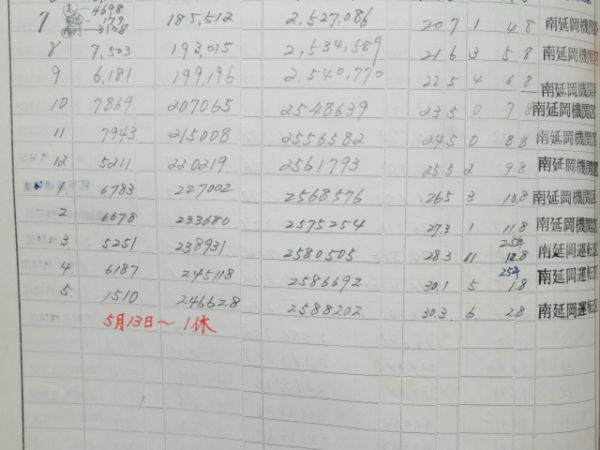 7 4698 179 3138 185,512 2,527,086 20.7 1 4.8 南延岡機関区
8 7,503 193,015 2,534,589 21.6 3 5.8 南延岡機関区
9 6,181 199,196 2,540,770 22.5 4 6.8 南延岡機関区
10 7869 207065 2548639 23.5 0 7.8 南延岡機関区
11 7943 215008 2556582 24.5 0 8.8 南延岡機関区
12 5211 220219 2561793 25.5 2 9.8 南延岡機関区
1 6783 227002 2568576 26.5 3 10.8 南延岡機関区
2 6678 233680 2575254 27.3 1 11.8 南延岡機関区
3 5251 238931 2580505 28.3 11 25年 12.8 南延岡運転区
4 6187 245118 2586692 30.1 5 25年 1.8 南延岡運転区
5 1510 246628 2588202 30.3 6 2.8 南延岡運転区
5月13日～1休